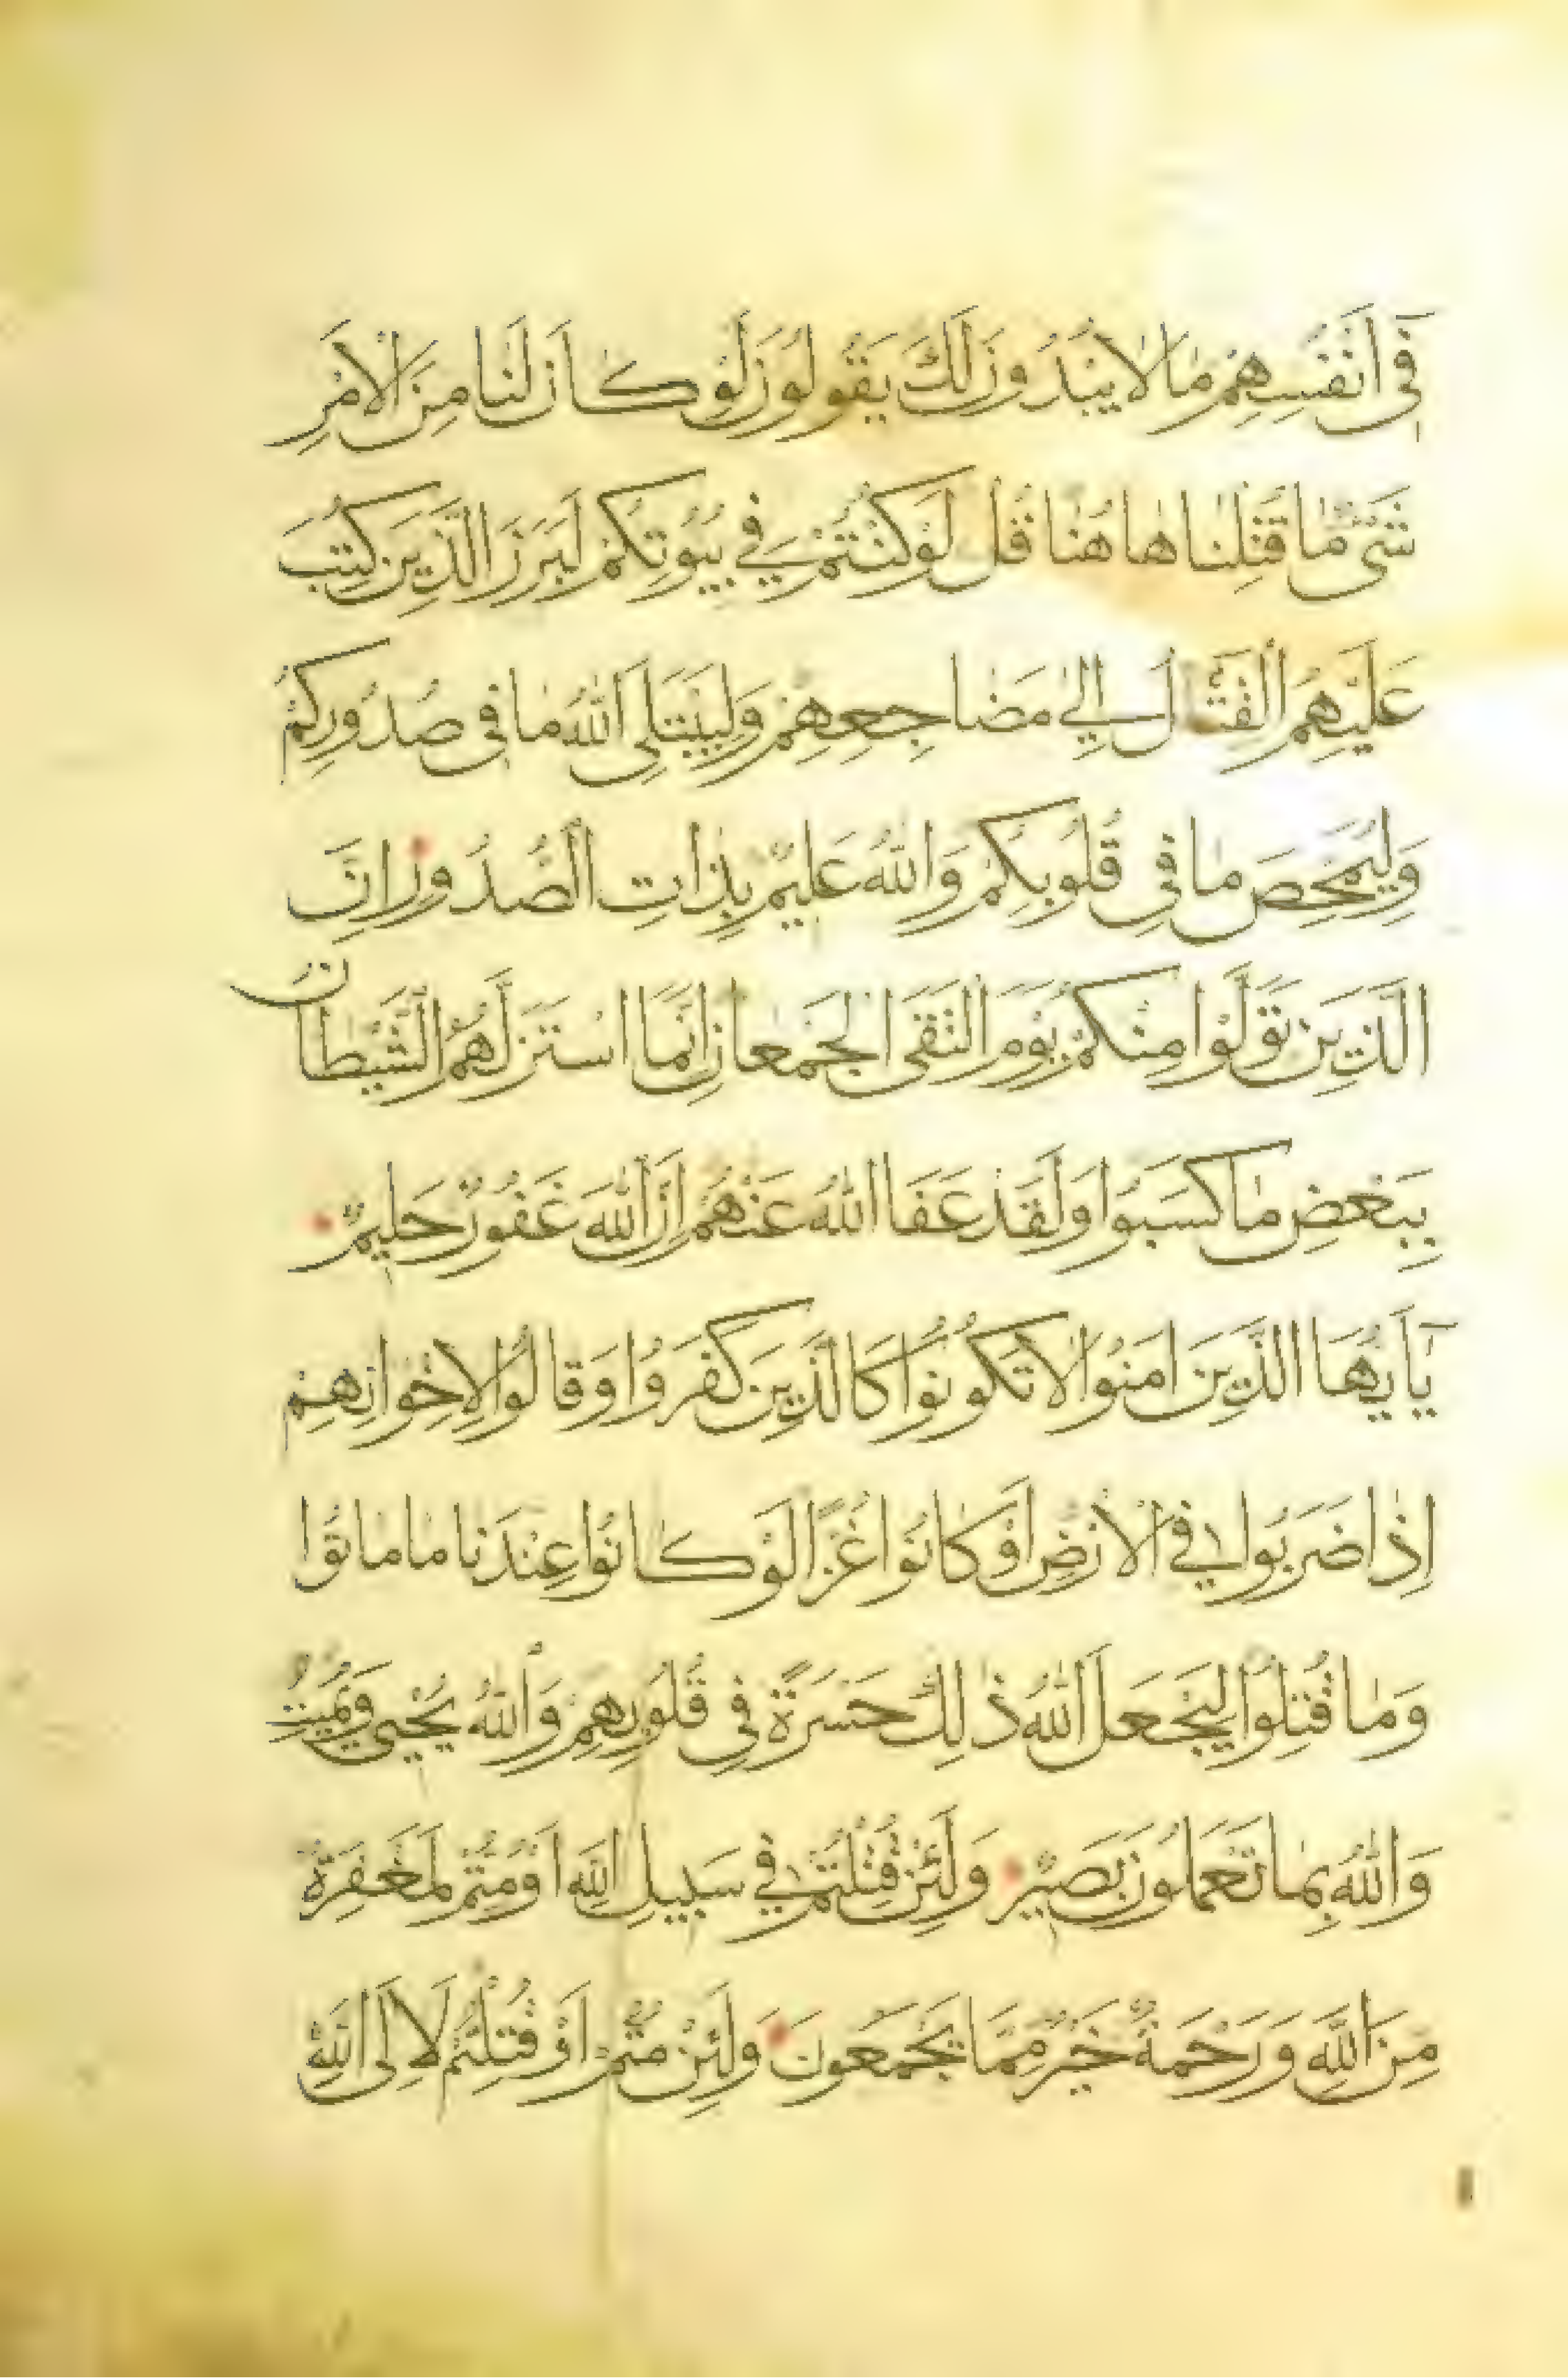 فِى اَنْفُسِهِمْ مٰا لاٰ يُبْدُونَ لَكَ يَقُولُونَ لَوْ كٰانَ لَنٰا مِنَ الْاَمْرِ
شَىْءٌ مٰا قُتِلْنٰا هٰا هُنٰا قُل لَوْ كُنْتُمْ فِي بُيُوتِكُمْ لَبَرَزَ الَّذِينَ كُتِبَ
عَلَيْهِمُ الْقَتْالُ اِلىٰ مَضٰاجِعِهِمْ وَلِيَبْتَلِىَ اللّٰهُ مٰا فِى صُدُورِكُمْ
وَلِيُمَحِّصَ مٰا فِى قُلُوبِكُمْ وَاللّٰهُ عَلِيمٌ بِذٰاتِ الصُّدُورِ اِنَّ
الَّذِينَ تَوَلَّوْا مِنْكُمْ يَوْمَ الْتَقَى الْجَمْعٰانِ اِنَّمَا اسْتَزَلَّهُمُ الشَّيْطٰانُ
بِبَعْضِ مٰا كَسَبُوا وَلَقَدْ عَفَا اللّٰهُ عَنْهُمْ اِنَّ اللّٰهَ غَفُورٌ حَلِيمٌ
يٰٓا اَيُّهَا الَّذِينَ اٰمَنُوا لاٰ تَكُونُوا كَالَّذِينَ كَفَرُوا وَقٰالُوا لِاِخْوٰانِهِمْ
اِذٰا ضَرَبُوا فِي الْاَرْضِ اَوْ كٰانُوا غُزًّا لَوْ كٰانُوا عِنْدَنٰا مٰا مٰاتُوا
وَمٰا قُتِلُوا لِيَجْعَلَ اللّٰهُ ذٰلِكَ حَسْرَةً فِى قُلُوبِهِمْ وَاللّٰهُ يُحْيِى وَيُمِيتُ
وَاللّٰهُ بِمٰا تَعْمَلُونَ بَصِيرٌ وَلَئِنْ قُتِلْتُمْ فِي سَبِيلِ اللّٰهِ اَوْ مُتُّمْ لَمَغْفِرَةٌ
مِنَ اللّٰهِ وَرَحْمَةٌ خَيْرٌ مِمَّا يَجْمَعُونَ وَلَئِنْ مُتُّمْ اَوْ قُتِلْتُمْ لَاِلَى اللّٰهِ